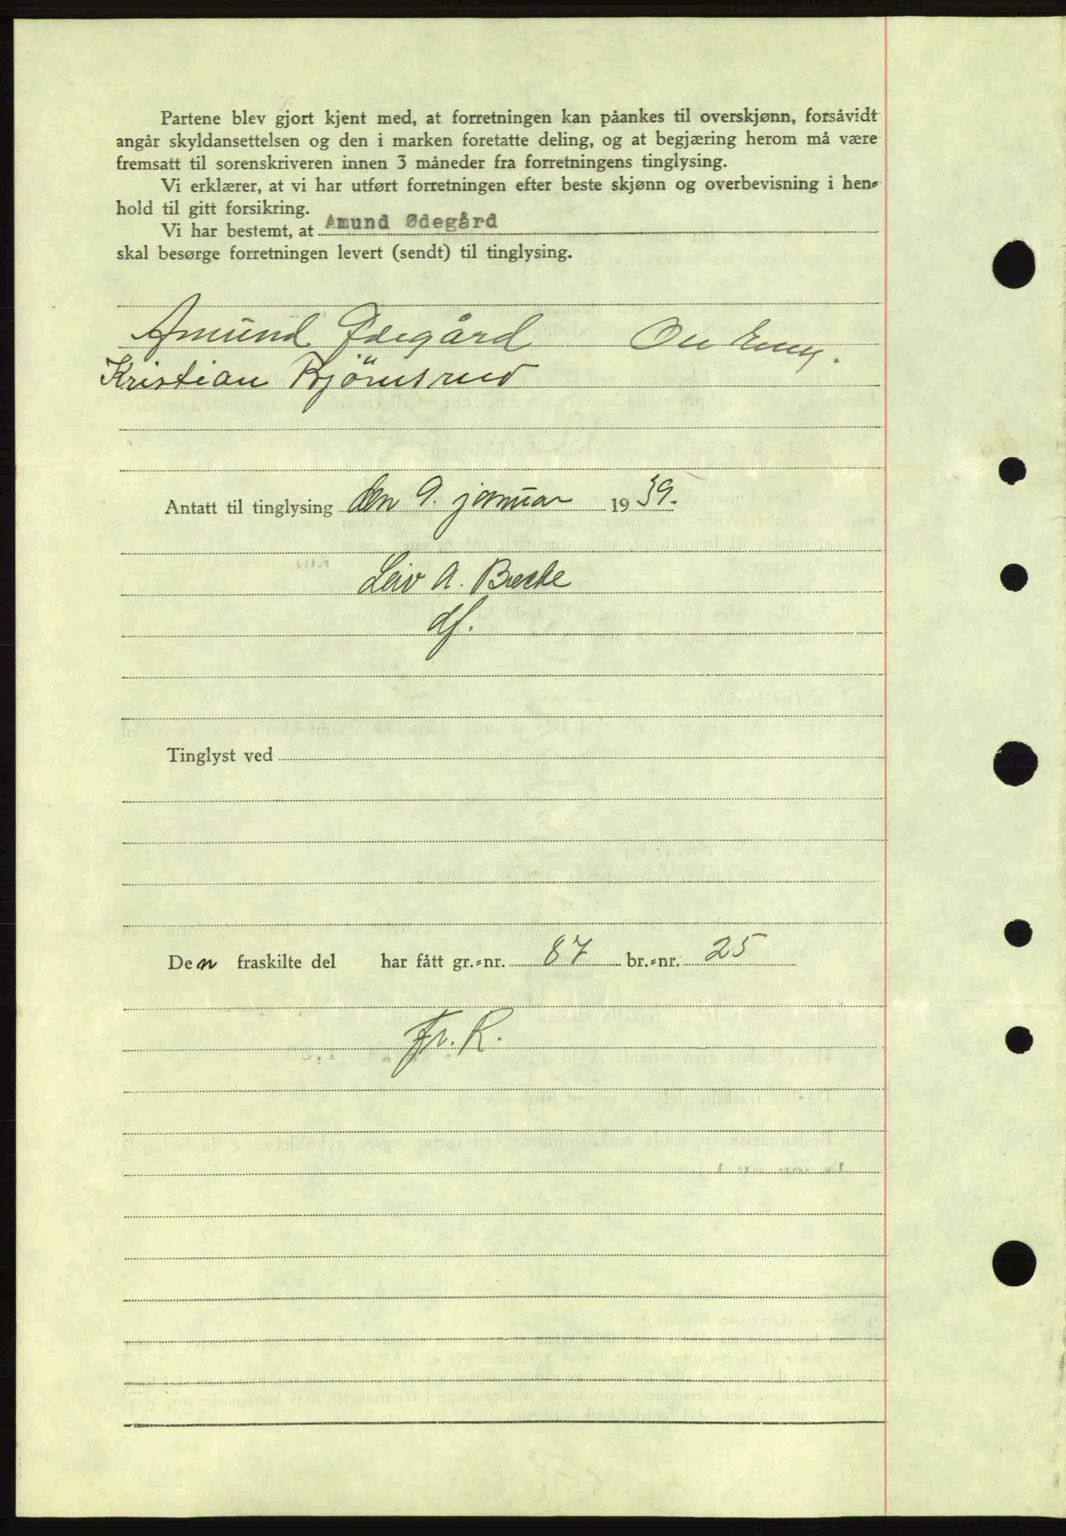 Partene blev gjort kjent med, at forretningen kan påankes til overskjønn, forsåvidt
angår skyldansettelsen og den i marken foretatte deling, og at begjæring herom må være
fremsatt til sorenskriveren innen 3 måneder fra forretningens tinglysing.
Vi erklærer, at vi har utført forretningen efter beste skjønn og overbevisning i hen-
hold til gitt forsikring.
Vi har bestemt, at Amund Ødegård
skal besørge forretningen levert (sendt) til tinglysing.
Amund Ødegård
Kristian Bjørnsrud
Antatt til tinglysing den 9. januar 1939.
Leiv A. Brecke
df.
Tinglyst ved
Den fraskilte del har fått gr.-nr. 87 br.-nr. 25
Fr. R.